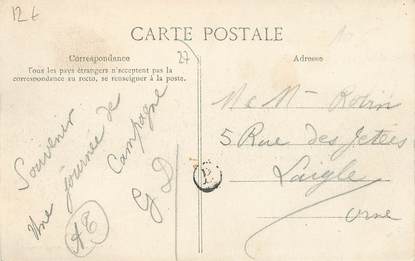 12€
CARTE POSTALE
Correspondance
27
Adresse
Tous les pays étrangers n'acceptent pas la
correspondance au recto, se renseigner à la poste.
Souvenir
Une journée de
Campagne
G D
M et Mme Robin
5 Rue des Jetées
Laigle
Orne